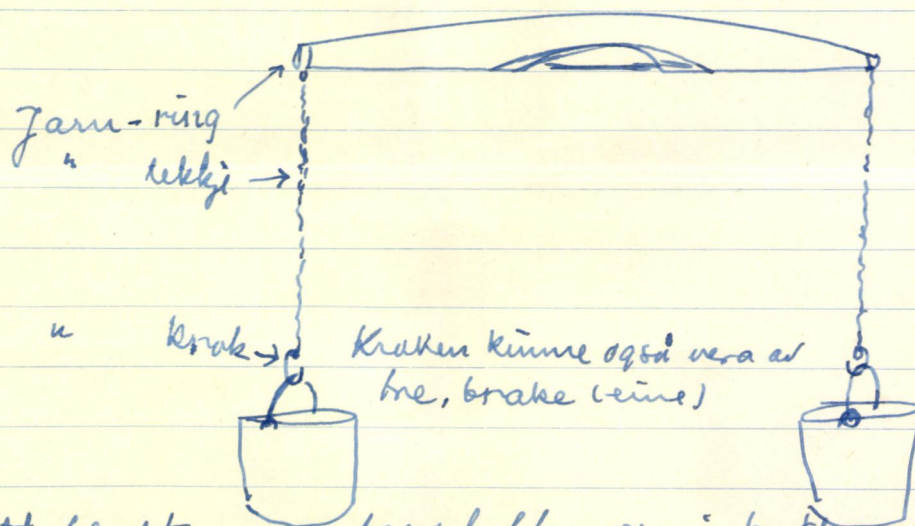 Jarn-ring
" lekkje
" krok
Kroken kunne også vera av
tre, brake (eine)